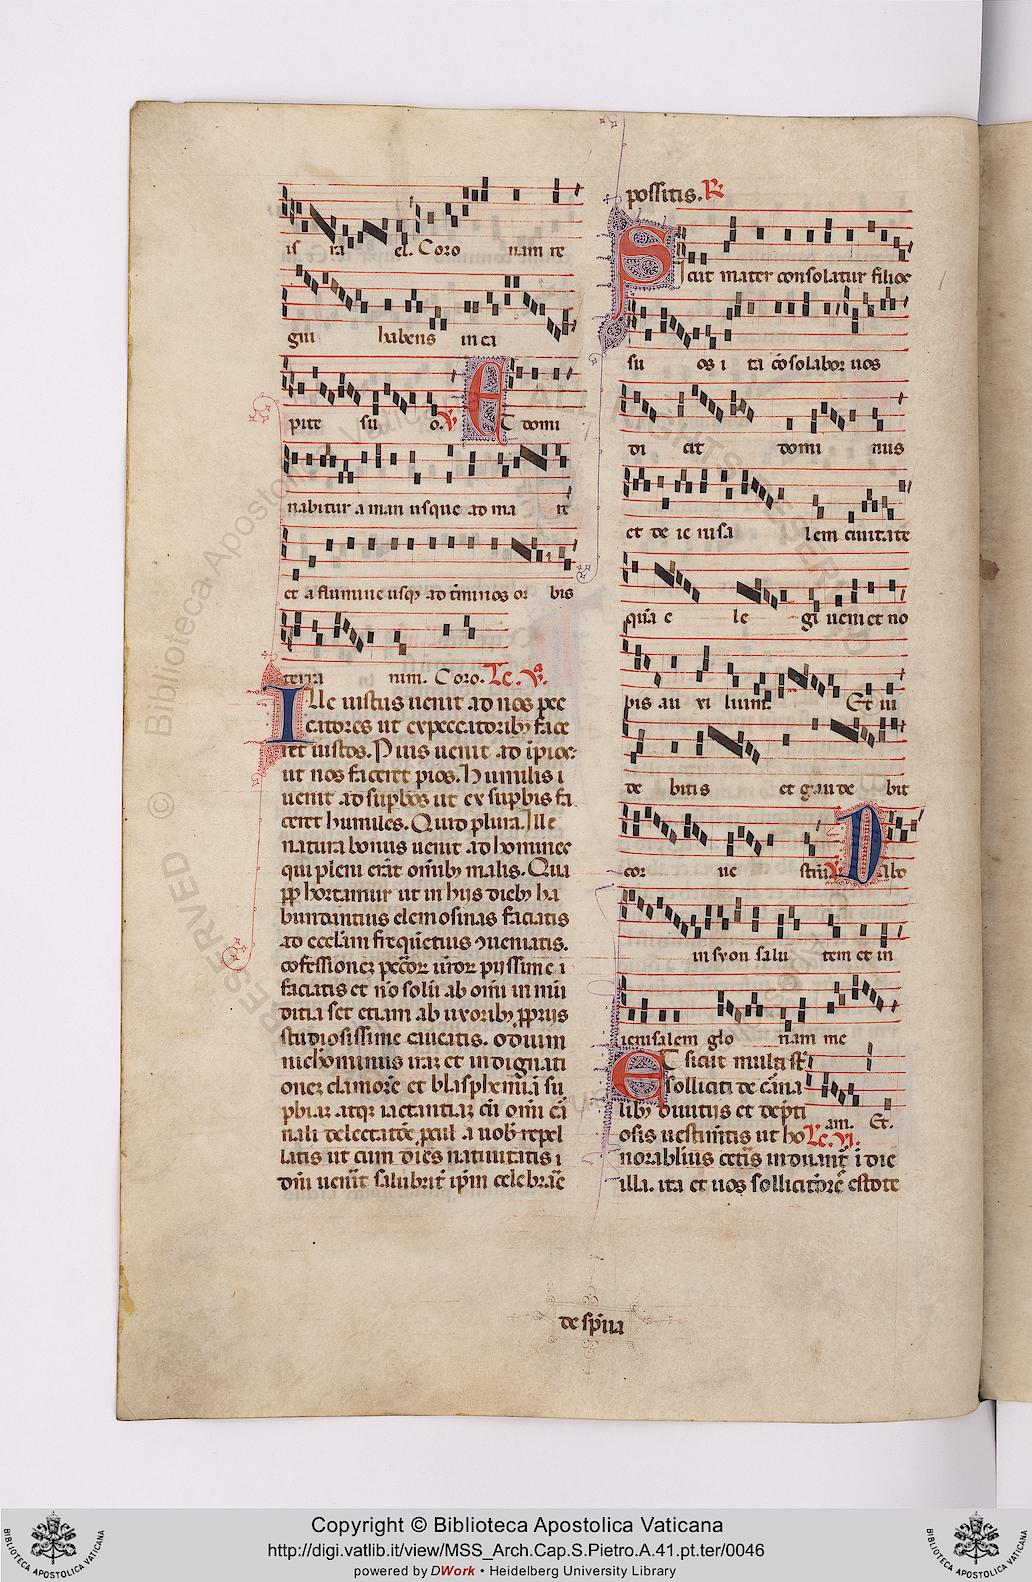 is ra el. Coro nam re
giū habens in ca
pite su o. ℣ Et domi
nabitur a mari usque ad ma re
et a flumine usq̄ ad t̄minos or bis
terra rum. Coro. Lc. v.ᵃ
Ille iustus uenit ad nos pec
catores ut ex peccatorib; face
ret iustos. Pius uenit ad ipios
ut nos faceret pios. Humilis
uenit ad sup̄bos ut ex sup̄bis fa
ceret humiles. Quid plura. Ille
natura bonus uenit ad homines
qui pleni erāt om̄ib; malis. Qua
ꝓp̄ hortamur ut in hijs dieb; ha
bundantius elemosinas faciatis
ad eccl̄am frequētius ꝯueniatis.
cōfessionez pcc̄or̄ ur̄or̄ pijssime
faciatis et nō solū ab om̄i inmū
ditia set etiam ab uxorib; ꝓprijs
studiosissime caueatis. odium
nichominus iraz et indignati
onez clamorē et blasphemiā su
pbiaz atqz iactantiaz cū om̄i
nali delectatōe a uob̄ repel
latis ut cum dies natiuitatis
dn̄i uen̄it salubrit̄ ip̄m celebrāe
possitis. ℟
Sicut mater consolatur filios
su os i ta cōsolabor uos
di cit domi nus
et de ie rusa lem ciuitate
quā e le gi ueniet uo
bis au xi lium. Et ui
de bitis et gaude bit
cor ue strū ℣ Dabo
in syon salu tem et in
ierusalem glo riam me
am. Et.
Et sicut multi st̄
solliciti de
lib; diuitijs et
osis uestim̄tis ut ho Lc. vi.
norabilius induant̄ ī die
illa. ita et uos sollicitiorē estote
de sp̄ua
RESERVED © Biblioteca Apostolica Vaticana ALL RIGHTS RESERVED
Copyright © Biblioteca Apostolica Vaticana
http://digi.vatlib.it/view/MSS_Arch.Cap.S.Pietro.A.41.pt.ter/0046
powered by DWork • Heidelberg University Library
BIBLIOTECA APOSTOLICA VATICANA
BIBLIOTECA APOSTOLICA VATICANA